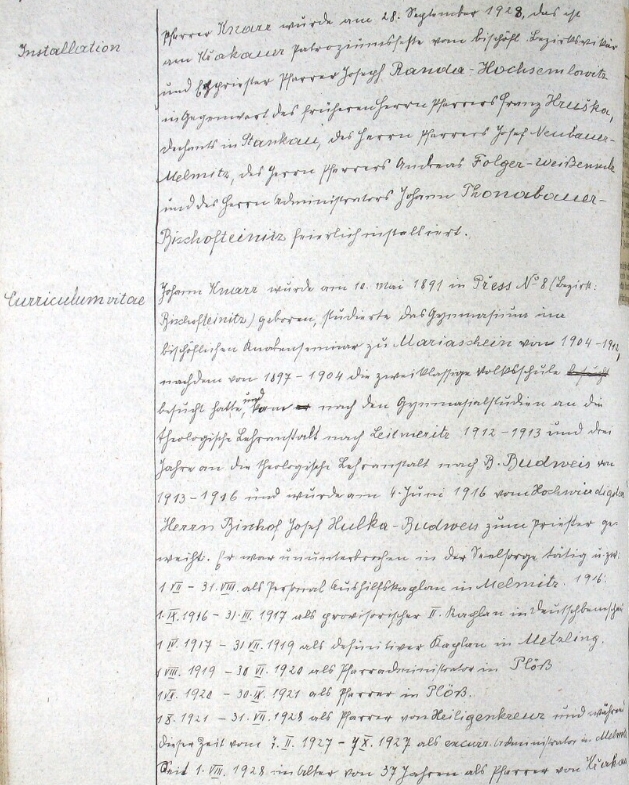 Installation
Pfarrer Knarr wurde am 28. September 1928, das ist
am Kwakauer Patroziniumsfeste vom bischöfl. Bezirksvikär
und Erzpriester Pfarrer Joseph Randa-Hochsemlowitz
in Gegenwart des früheren Herrn Pfarrers Franz Hruška,
Dechants in Stankau, des Herrn Pfarrers Josef Neubauer-
Melmitz, des Herrn Pfarrers Andreas Folger-Weißensulz
und des Herrn Administrators Johann Thonabauer-
Bischofteinitz feierlich installiert.
Curriculum vitae
Johann Knarr wurde am 10. Mai 1891 in Press No 8 (Bezirk:
Bischofteinitz) geboren, studierte das Gymnasium im
bischöflichen Knabenseminar zu Mariaschein von 1904-1912,
nachdem von 1897-1904 die zweiklassige Volksschule
besucht hatte, und kam nach den Gymnasialstudien an die
theologische Lehranstalt nach Leitmeritz 1912-1913 und drei
Jahre an die theologische Lehranstalt nach B. Budweis von
1913-1916 und wurde am 4. Juni 1916 vom Hochwürdigsten
Herrn Bischof Josef Hulka-Budweis zum Priester ge-
weiht. Er war ununterbrochen in der Seelsorge tätig u. zw.
1 VII - 31. VIII. als Personal Aushilfskaplan in Melmitz. 1916.
1. IX. 1916 - 31. III. 1917 als provisorischer II. Kaplan in
1 IV. 1917 - 31 VII. 1919 als definitiver Kaplan in Metzling.
1 VIII. 1919 - 30 VI. 1920 als Pfarradministrator in Plöß
1 VII. 1920 - 30. IX. 1921 als Pfarrer in Plöß.
1 X. 1921 - 31. VII. 1928 als Pfarrer von Heiligenkreuz und während
dieser Zeit vom 7. II. 1927 - 7 X. 1927 als excurr. Administrator in
Seit 1. VIII. 1928 im Alter von 37 Jahren als Pfarrer von